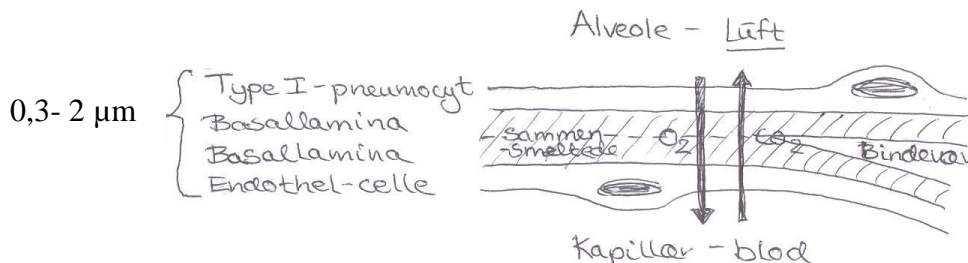 Alveole - Luft
0,3- 2 µm
Type I-pneumocyt
Basallamina
Basallamina
Endothel-celle
sammen-
-smeltede
O₂
CO₂
Bindevæv
Kapillær - blod